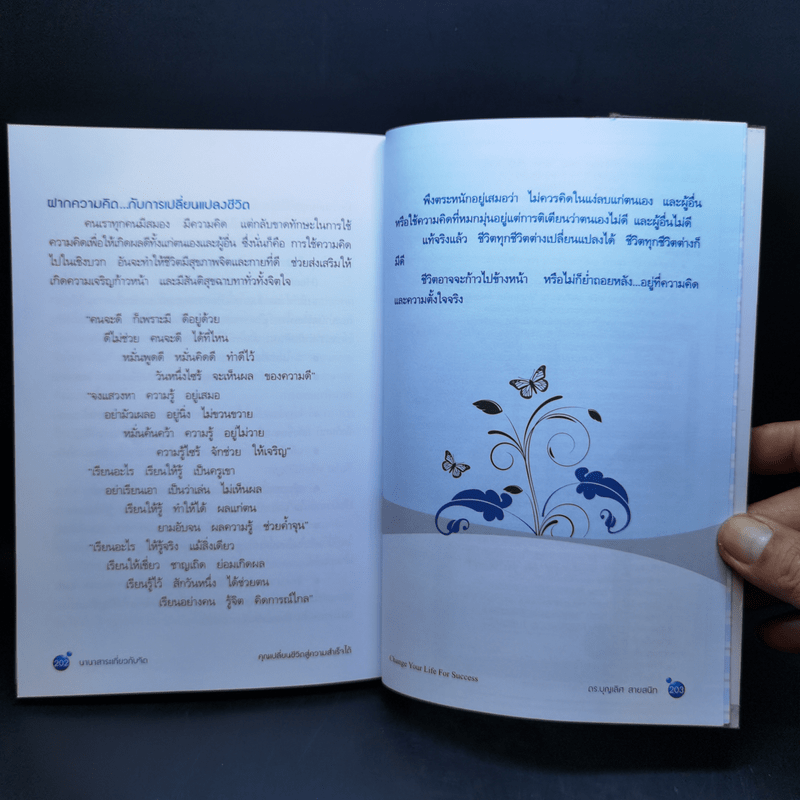 ฝากความคิด...กับการเปลี่ยนแปลงชีวิต
คนเราทุกคนมีสมอง มีความคิด แต่กลับขาดทักษะในการใช้
ความคิดเพื่อให้เกิดผลดีทั้งแก่ตนเองและผู้อื่น ซึ่งนั่นก็คือ การใช้ความคิด
ไปในเชิงบวก อันจะทำให้ชีวิตมีสุขภาพจิตและกายที่ดี ช่วยส่งเสริมให้
เกิดความเจริญก้าวหน้า และมีสันติสุขฉาบทาทั่วทั้งจิตใจ
"คนจะดี ก็เพราะมี ดีอยู่ด้วย
ดีไม่ช่วย คนจะดี ได้ที่ไหน
หมั่นพูดดี หมั่นคิดดี ทำดีไว้
วันหนึ่งไซร้ จะเห็นผล ของความดี"
"จงแสวงหา ความรู้ อยู่เสมอ
อย่ามัวเผลอ อยู่นิ่ง ไม่ขวนขวาย
หมั่นค้นคว้า ความรู้ อยู่ไม่วาย
ความรู้ไซร้ จักช่วย ให้เจริญ"
"เรียนอะไร เรียนให้รู้ เป็นครูเขา
อย่าเรียนเอา เป็นว่าเล่น ไม่เห็นผล
เรียนให้รู้ ทำให้ได้ ผลแก่ตน
ยามอับจน ผลความรู้ ช่วยค้ำจุน"
"เรียนอะไร ให้รู้จริง แม้สิ่งเดียว
เรียนให้เชี่ยว ชาญเถิด ย่อมเกิดผล
เรียนรู้ไว้ สักวันหนึ่ง ได้ช่วยตน
เรียนอย่างคน รู้จิต คิดการณ์ไกล"
202 นานาสาระเกี่ยวกับจิต คุณเปลี่ยนชีวิตสู่ความสำเร็จได้
พึงตระหนักอยู่เสมอว่า ไม่ควรคิดในแง่ลบแก่ตนเอง และผู้อื่น
หรือใช้ความคิดที่หมกมุ่นอยู่แต่การติเตียนว่าตนเองไม่ดี และผู้อื่นไม่ดี
แท้จริงแล้ว ชีวิตทุกชีวิตต่างเปลี่ยนแปลงได้ ชีวิตทุกชีวิตต่างก็
มีดี
ชีวิตอาจจะก้าวไปข้างหน้า หรือไม่ก็ย่ำถอยหลัง...อยู่ที่ความคิด
และความตั้งใจจริง
Change Your Life For Success
ดร.บุญเลิศ สายสนิท 203